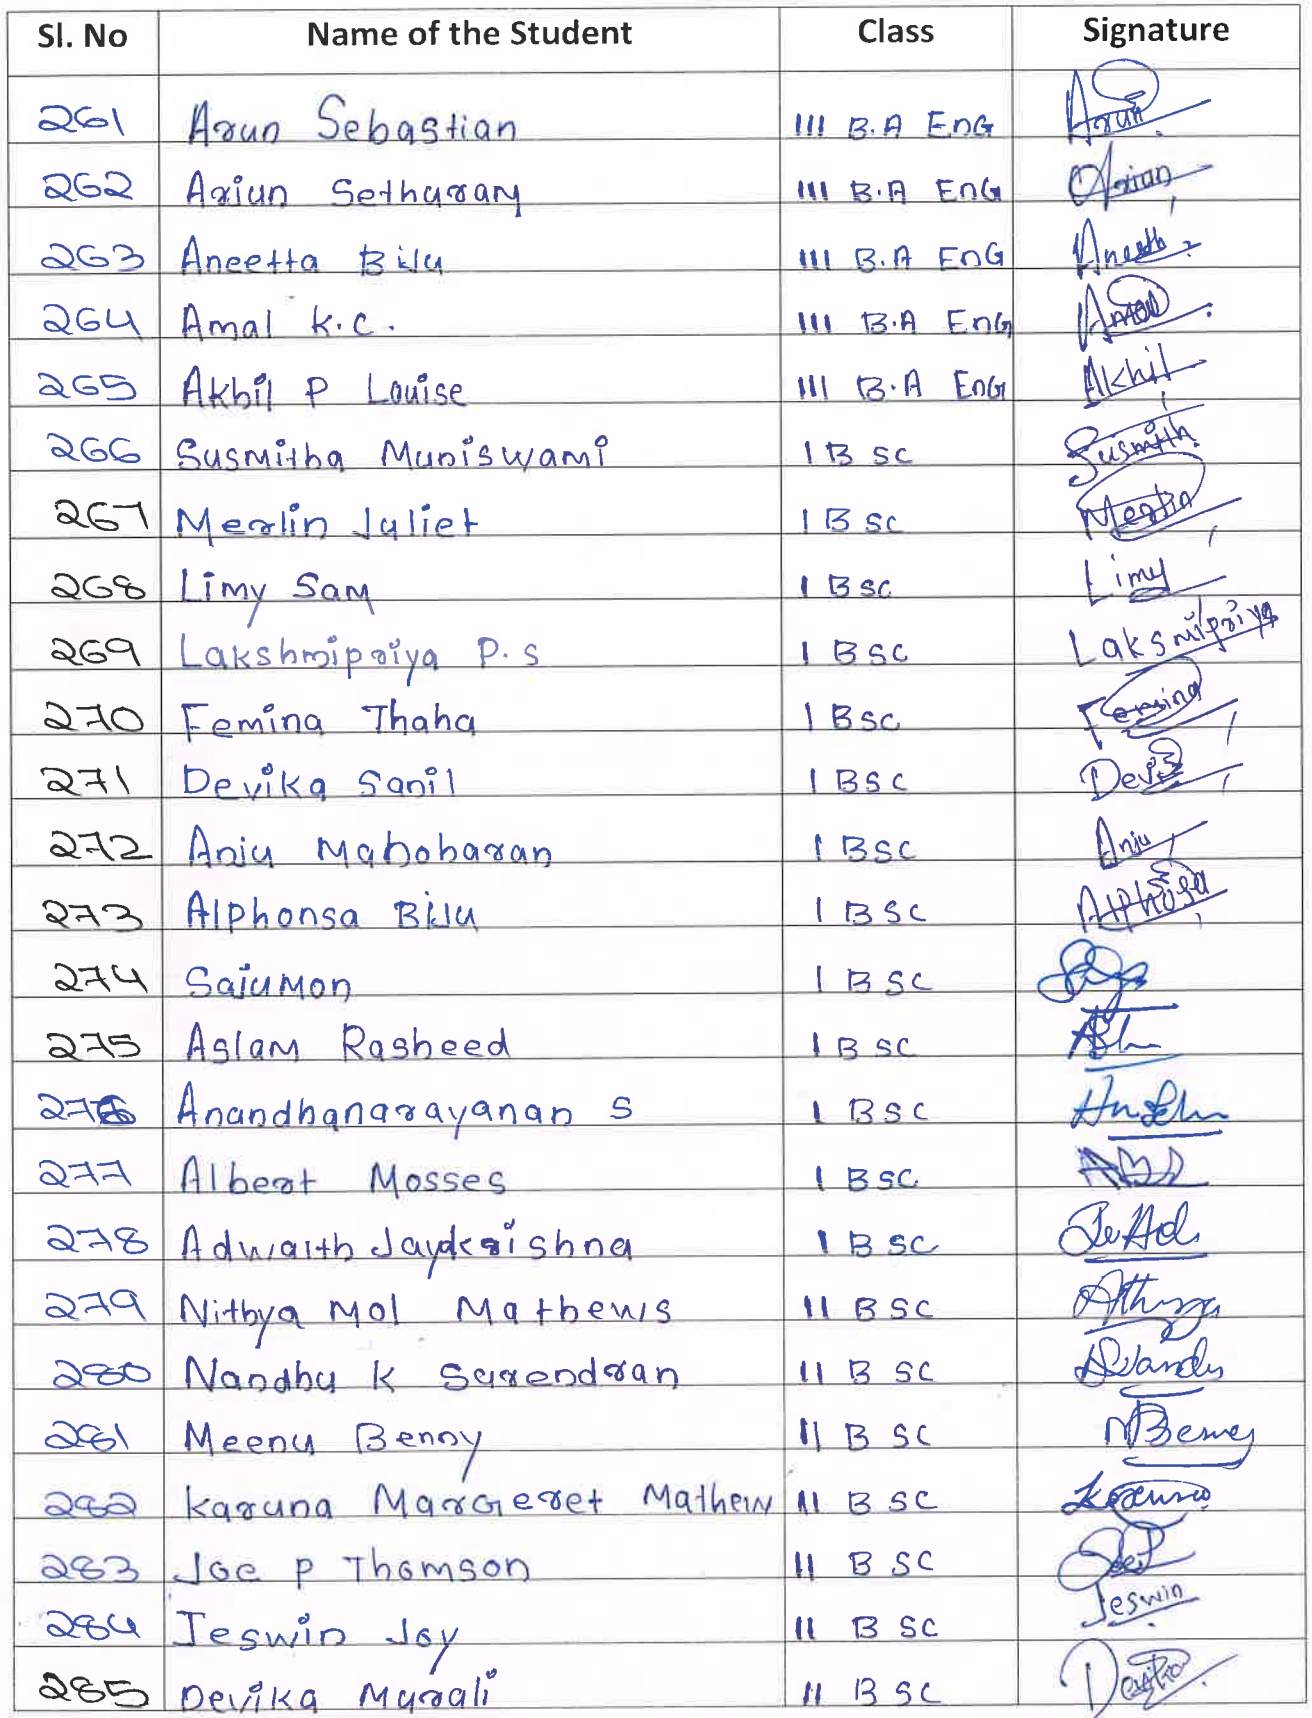 Sl. No Name of the Student Class Signature
261 Arun Sebastian III B.A EnG Arun
262 Arjun Sethuram III B.A EnG Arjun
263 Aneetta Biju III B.A EnG
264 Amal K.C. III B.A EnG Amal
265 Akhil P Louise III B.A EnG Akhil
266 Susmitha Muniswami I B SC Susmith
267 Merlin Juliet I B SC Merlin
268 Limy Sam I B SC Limy
269 Lakshmipriya P.S I B SC Laksmipriya
270 Femina Thaha I B SC Femina
271 Devika Sanil I B SC
272 Anju Mahoharan I B SC Anju
273 Alphonsa Biju I B SC
274 Sajumon I B SC
275 Aslam Rasheed I B SC
276 Anandhanarayanan S I B SC
277 Albert Mosses I B SC
278 Adwaith Jaykrishna I B SC
279 Nithya Mol Mathews II B SC
280 Nandhu K Surendran II B SC
281 Meenu Benny II B SC
282 Karuna Margeret Mathew II B SC
283 Joe P Thomson II B SC
284 Jeswin Joy II B SC Jeswin
285 Devika Murali II B SC